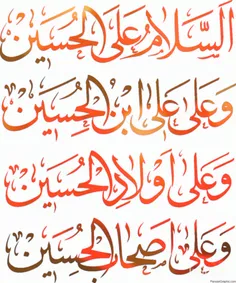 السَّلَامُ عَلَى الحُسَيْن
وَعَلَى عَلِيِّ ابْنِ الحُسَيْن
وَعَلَى أَوْلَادِ الحُسَيْن
وَعَلَى أَصْحَابِ الحُسَيْن